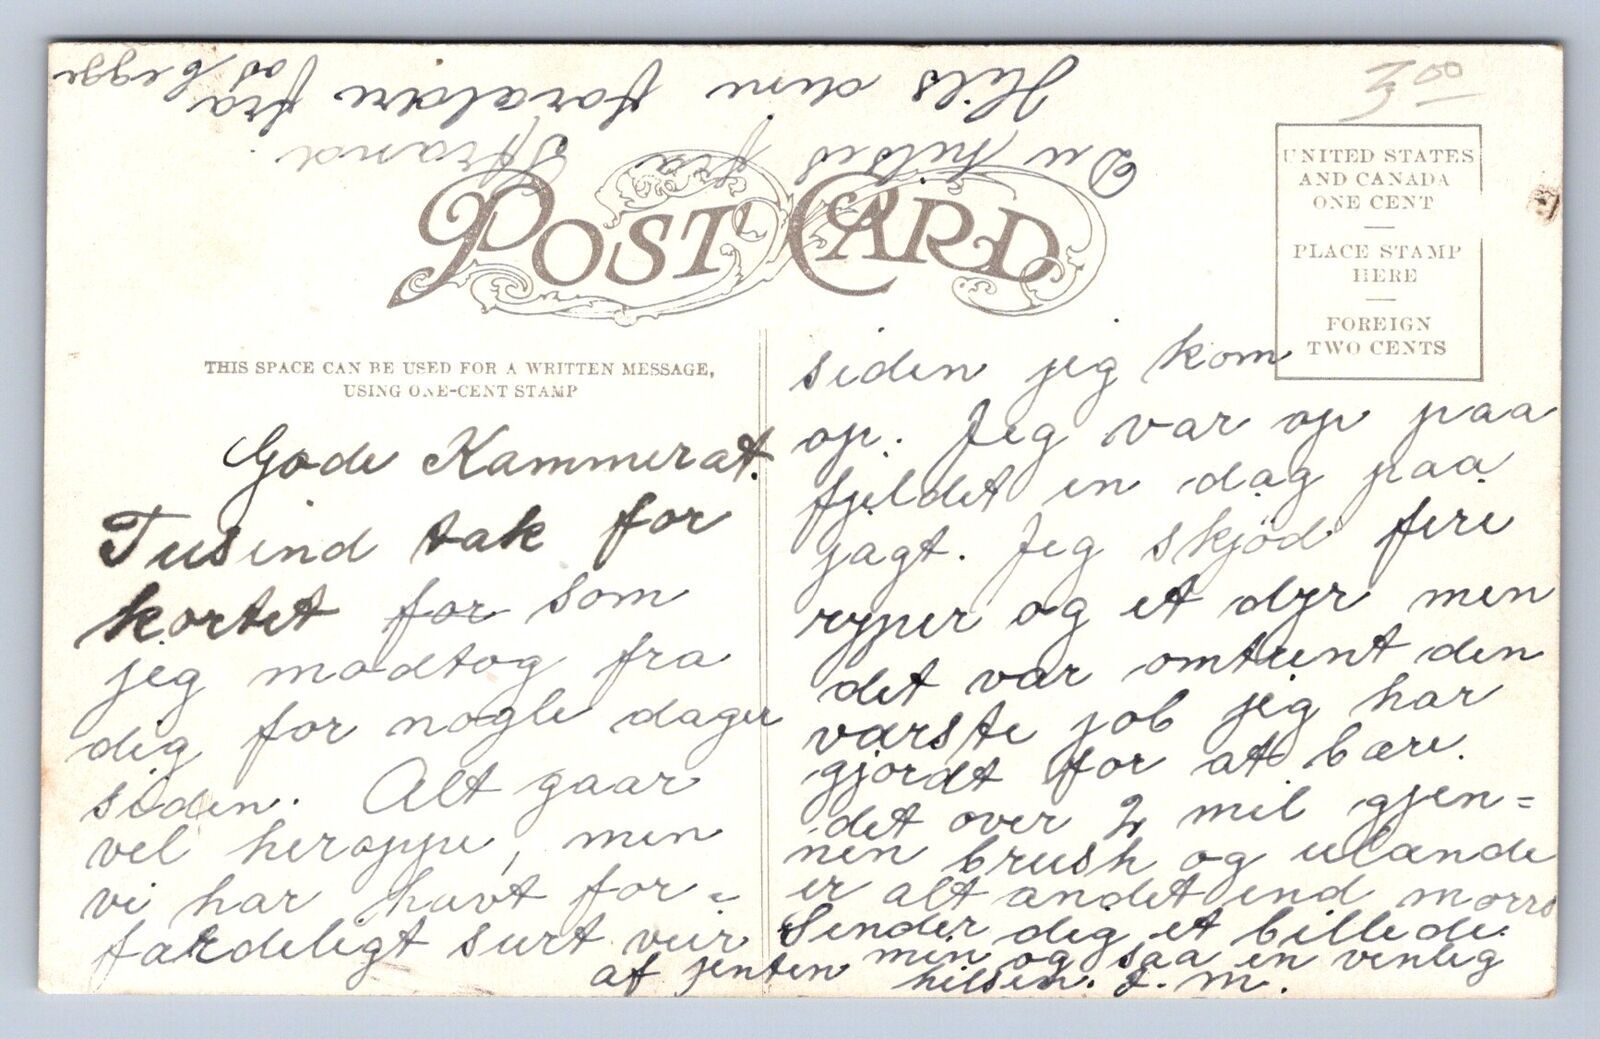 Hils dine foraldre fra os begge
Du hilses fra Strand.
3.00
POST CARD
UNITED STATES
AND CANADA
ONE CENT
PLACE STAMP
HERE
FOREIGN
TWO CENTS
THIS SPACE CAN BE USED FOR A WRITTEN MESSAGE,
USING ONE-CENT STAMP
Gode Kammerat.
Tusind tak for
kortet for som
jeg modtog fra
dig for nogle dager
siden. Alt gaar
vel heroppe, men
vi har havt for=
færdeligt surt veir
siden jeg kom
op. Jeg var op paa
fjeldet en dag paa
jagt. Jeg skjød fire
ryper og et dyr men
det var omtrent den
værste job jeg har
gjordt for at bære
det over 2 mil gjen=
nen brush og ulænde
er alt andet end morro
Sender dig et billede
af jenten min og saa en venlig
hilsen. I. M.